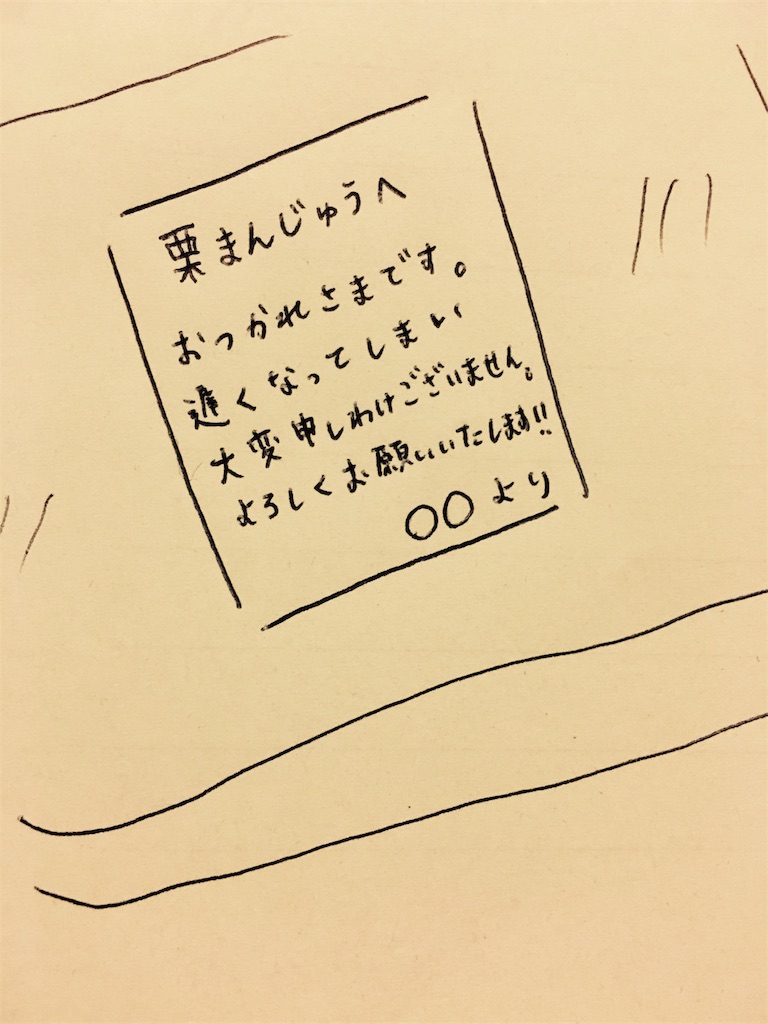 栗まんじゅうへ
おつかれさまです。
遅くなってしまい
大変申しわけございません。
よろしくお願いいたします!!
〇〇より